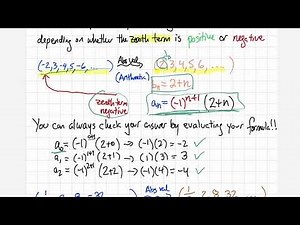 depending on whether the zeroth term is positive or negative
(-2,3,-4,5,-6,...) Abs val (2,3,4,5,6,...)
(Arithmetic) aₙ = 2+n
zeroth term negative
aₙ = (-1)ⁿ⁺¹ (2+n)
You can always check your answer by evaluating your formula!!
a₀ = (-1)⁰⁺¹ (2+0) → (-1)(2) = -2 ✓
a₁ = (-1)¹⁺¹ (2+1) → (1)(3) = 3 ✓
a₂ = (-1)²⁺¹ (2+2) → (-1)(4) = -4 ✓
Abs val